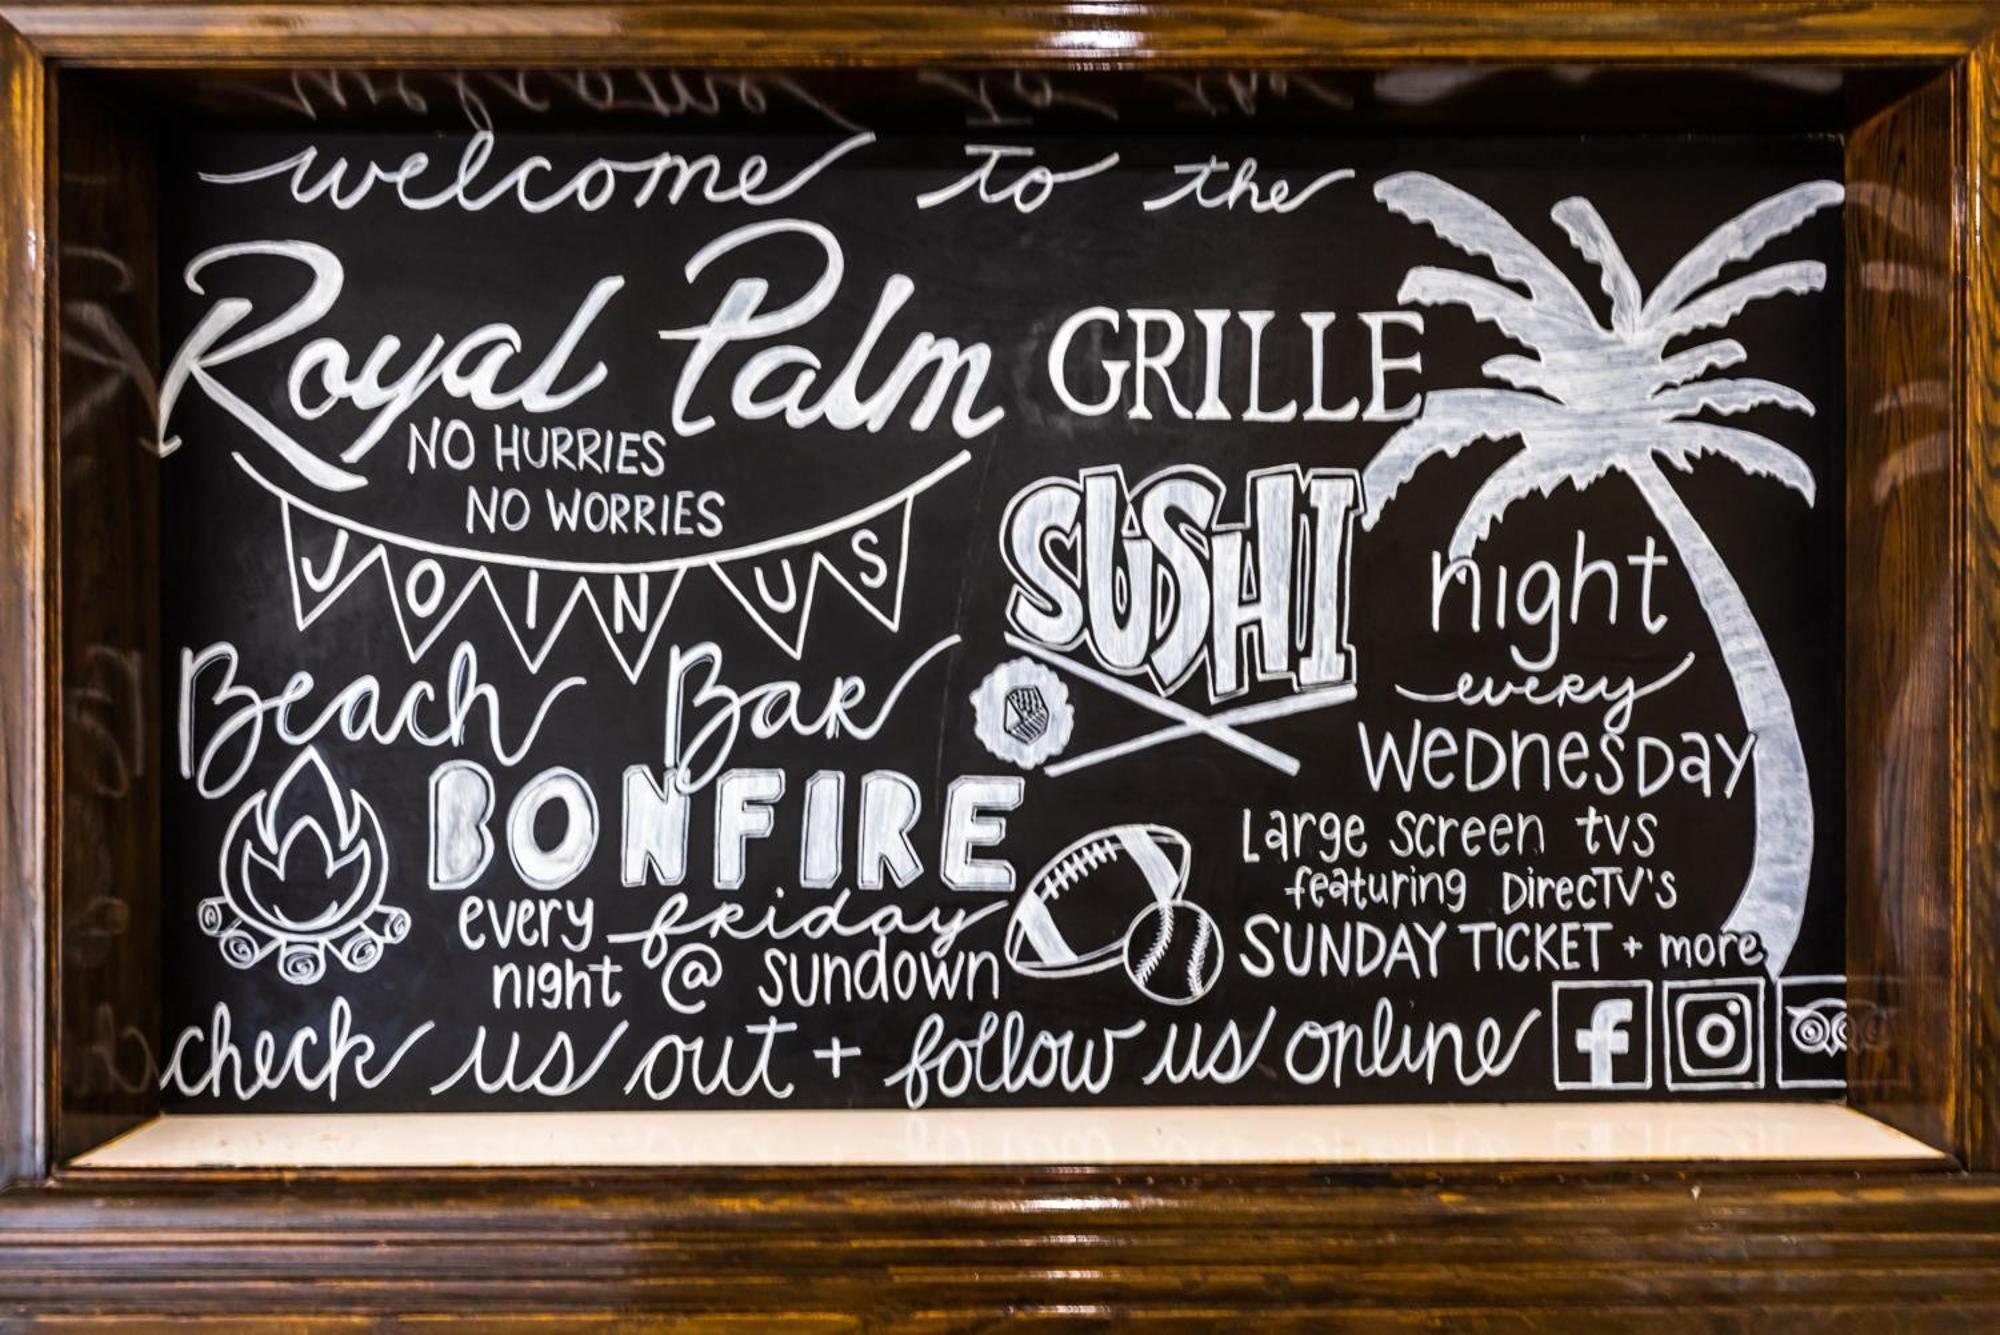 welcome to the
Royal Palm GRILLE
NO HURRIES
NO WORRIES
JOIN US
Beach Bar
BONFIRE
every friday
night @ sundown
SUSHI
night
every
Wednesday
Large screen tvs
featuring DirecTV's
SUNDAY TICKET + more
check us out + follow us online f